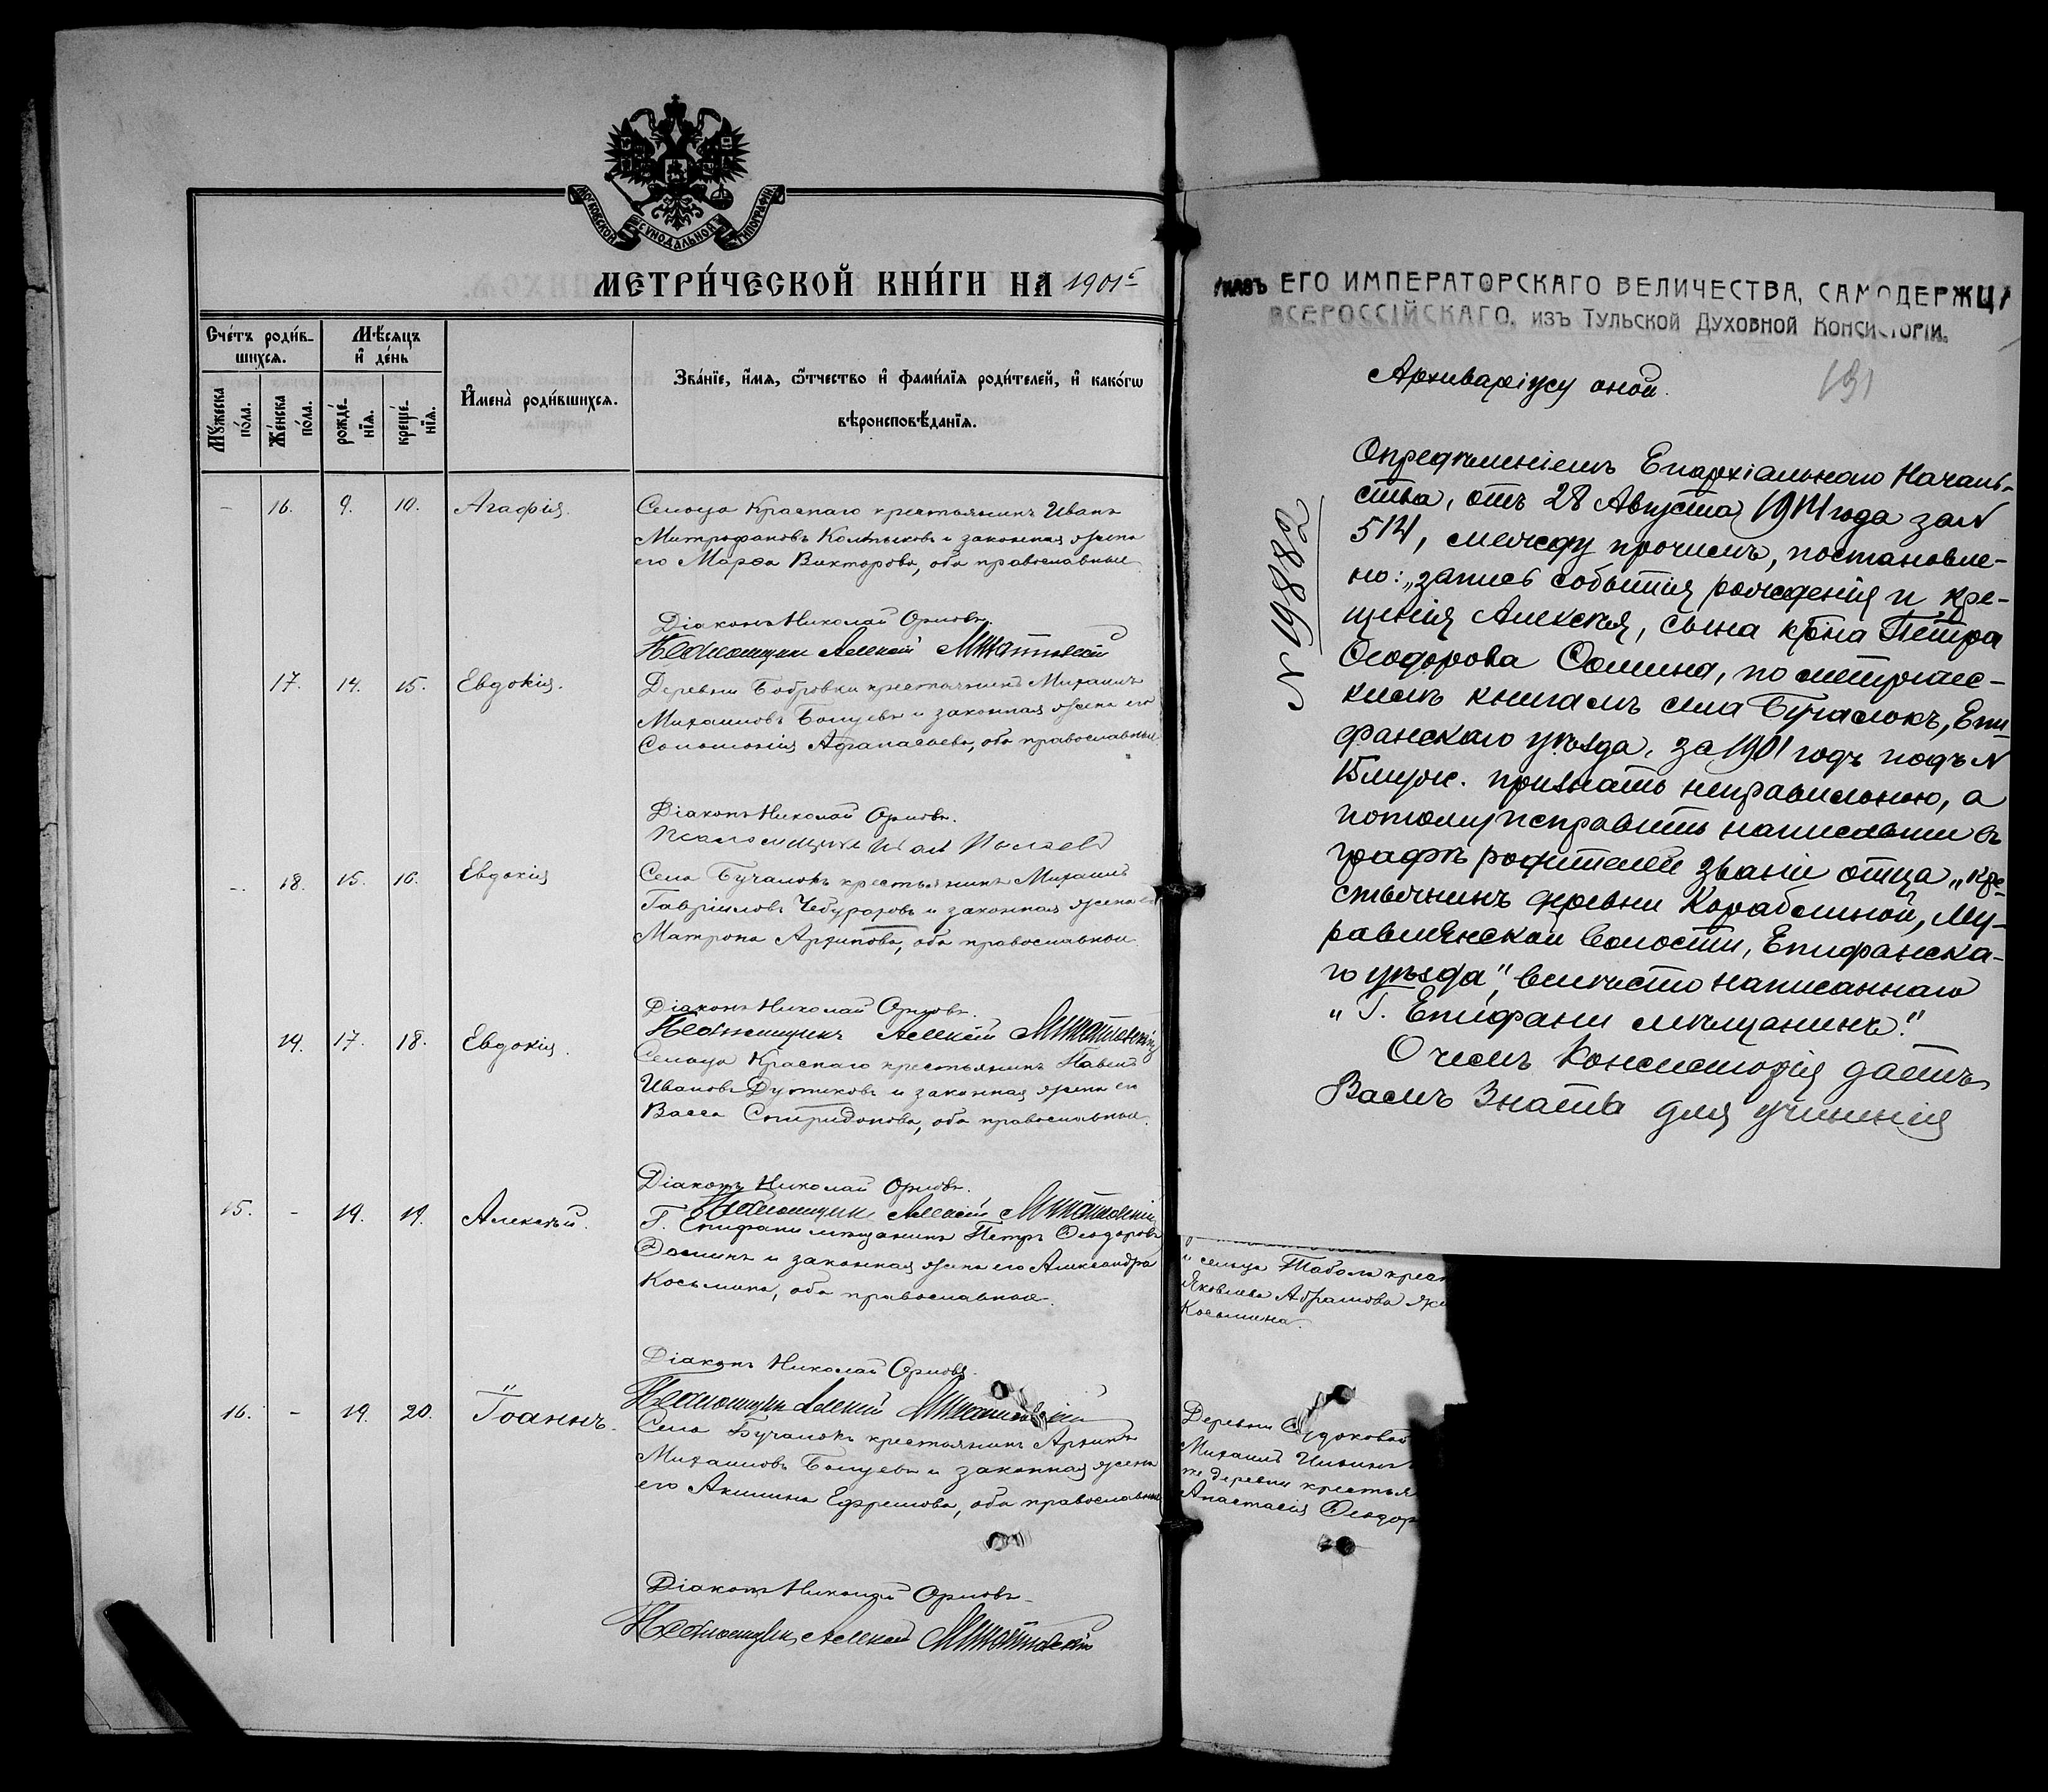 МОСКОВСКОЙ СѴНОДАЛЬНОЙ ТИПОГРАФІИ
МЕТРИ́ЧЕСКОЙ КНИ́ГИ НА 1901 г.
Сче́тъ роди́вшихся.
Мѣ́сяцъ и де́нь
Имена̀ роди́вшихся.
Зва́нїе, и́мя, ѻ҆́тчество и фами́лїя роди́телей, и како́гѡ
вѣроисповѣ́данїя.
Мꙋ́жеска по́ла.
Же́нска по́ла.
рожде́нїя.
креще́нїя.
- 16. 9. 10. Агафія.
Сельца Краснаго крестьянинъ Иванъ
Митрофановъ Колтыковъ и законная жена
его Марѳа Викторова, оба православные
Діаконъ Николай Орловъ.
Псаломщикъ Алексій
17. 14. 15. Евдокія.
Деревни Бобровки крестьянинъ Михаилъ
Михаиловъ Болуевъ и законная жена его
Соломонія Аѳанасьева, оба православные
Діаконъ Николай Орловъ.
Псаломщикъ
- 18. 15. 16. Евдокія
Села Бучалокъ крестьянинъ Михаилъ
Гавріиловъ Чебураровъ и законная жена его
Матрона Архипова, оба православные.
Діаконъ Николай Орловъ.
Псаломщикъ Алексій
19. 17. 18. Евдокія.
Сельца Краснаго крестьянинъ Павелъ
Ивановъ Дутиковъ и законная жена его
Васса Спиридонова, оба православные.
Діаконъ Николай Орловъ.
Псаломщикъ Алексій
15. - 19. 19. Алексѣй.
Г. Епифани мѣщанинъ Петръ Ѳеодоровъ
Ѳоминъ и законная жена его Александра
Косьмина, оба православные.
Діаконъ Николай Орловъ.
Псаломщикъ Алексій
16. - 19. 20. Іоаннъ.
Села Бучалокъ крестьянинъ Архипъ
Михаиловъ Болуевъ и законная жена
его Акилина Ефремова, оба православные
Діаконъ Николай Орловъ.
Псаломщикъ Алексій
УКАЗЪ ЕГО ИМПЕРАТОРСКАГО ВЕЛИЧЕСТВА, САМОДЕРЖЦА
ВСЕРОССІЙСКАГО, ИЗЪ ТУЛЬСКОЙ ДУХОВНОЙ КОНСИСТОРІИ.
Архиваріусу оной.
191
N 19882
Опредѣленіемъ Епархіальнаго Началь-
ства, отъ 28 Августа 1914 года за N
514, между прочимъ, постановле-
но: „запись событія рожденія и кре-
щенія Алексѣя, сына кр-на Петра
Ѳеодорова Ѳомина, по метричес-
кимъ книгамъ села Бучалокъ, Епи
фанскаго уѣзда, за 1901 годъ подъ N
15 муж. признать неправильною, а
потому исправить написавши въ
графѣ родителей званіе отца „кре-
стьянинъ деревни Кораблиной, Му-
равлянской волости, Епифанска-
го уѣзда", вмѣсто написаннаго
„Г. Епифани мѣщанинъ."
О чемъ Консисторія даетъ
Вамъ знать для учиненія
и сельца Табола крест
Яковлева Абрамова же
Косьмина.
Деревни Судоковой
Михаилъ Ильинъ
же деревни крестья
Анастасія Ѳеодор